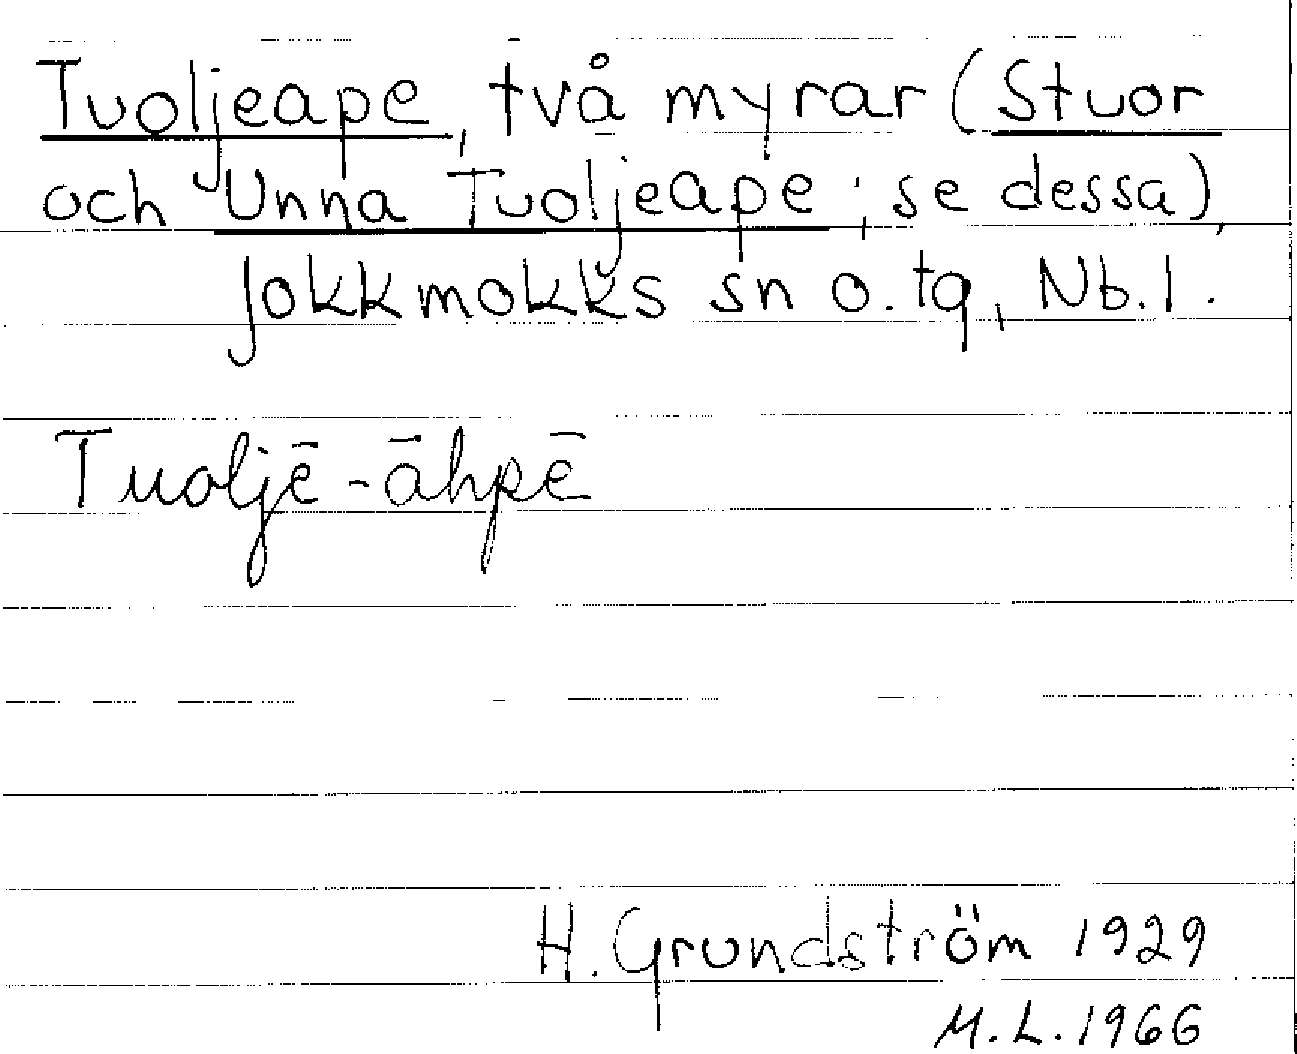 Tuoljeape, två myrar (Stuor
och Unna Tuoljeape; se dessa),
Jokkmokks sn o. tg, Nb. l.
Tuoljē-āhpē
H. Grundström 1929
M.L. 1966